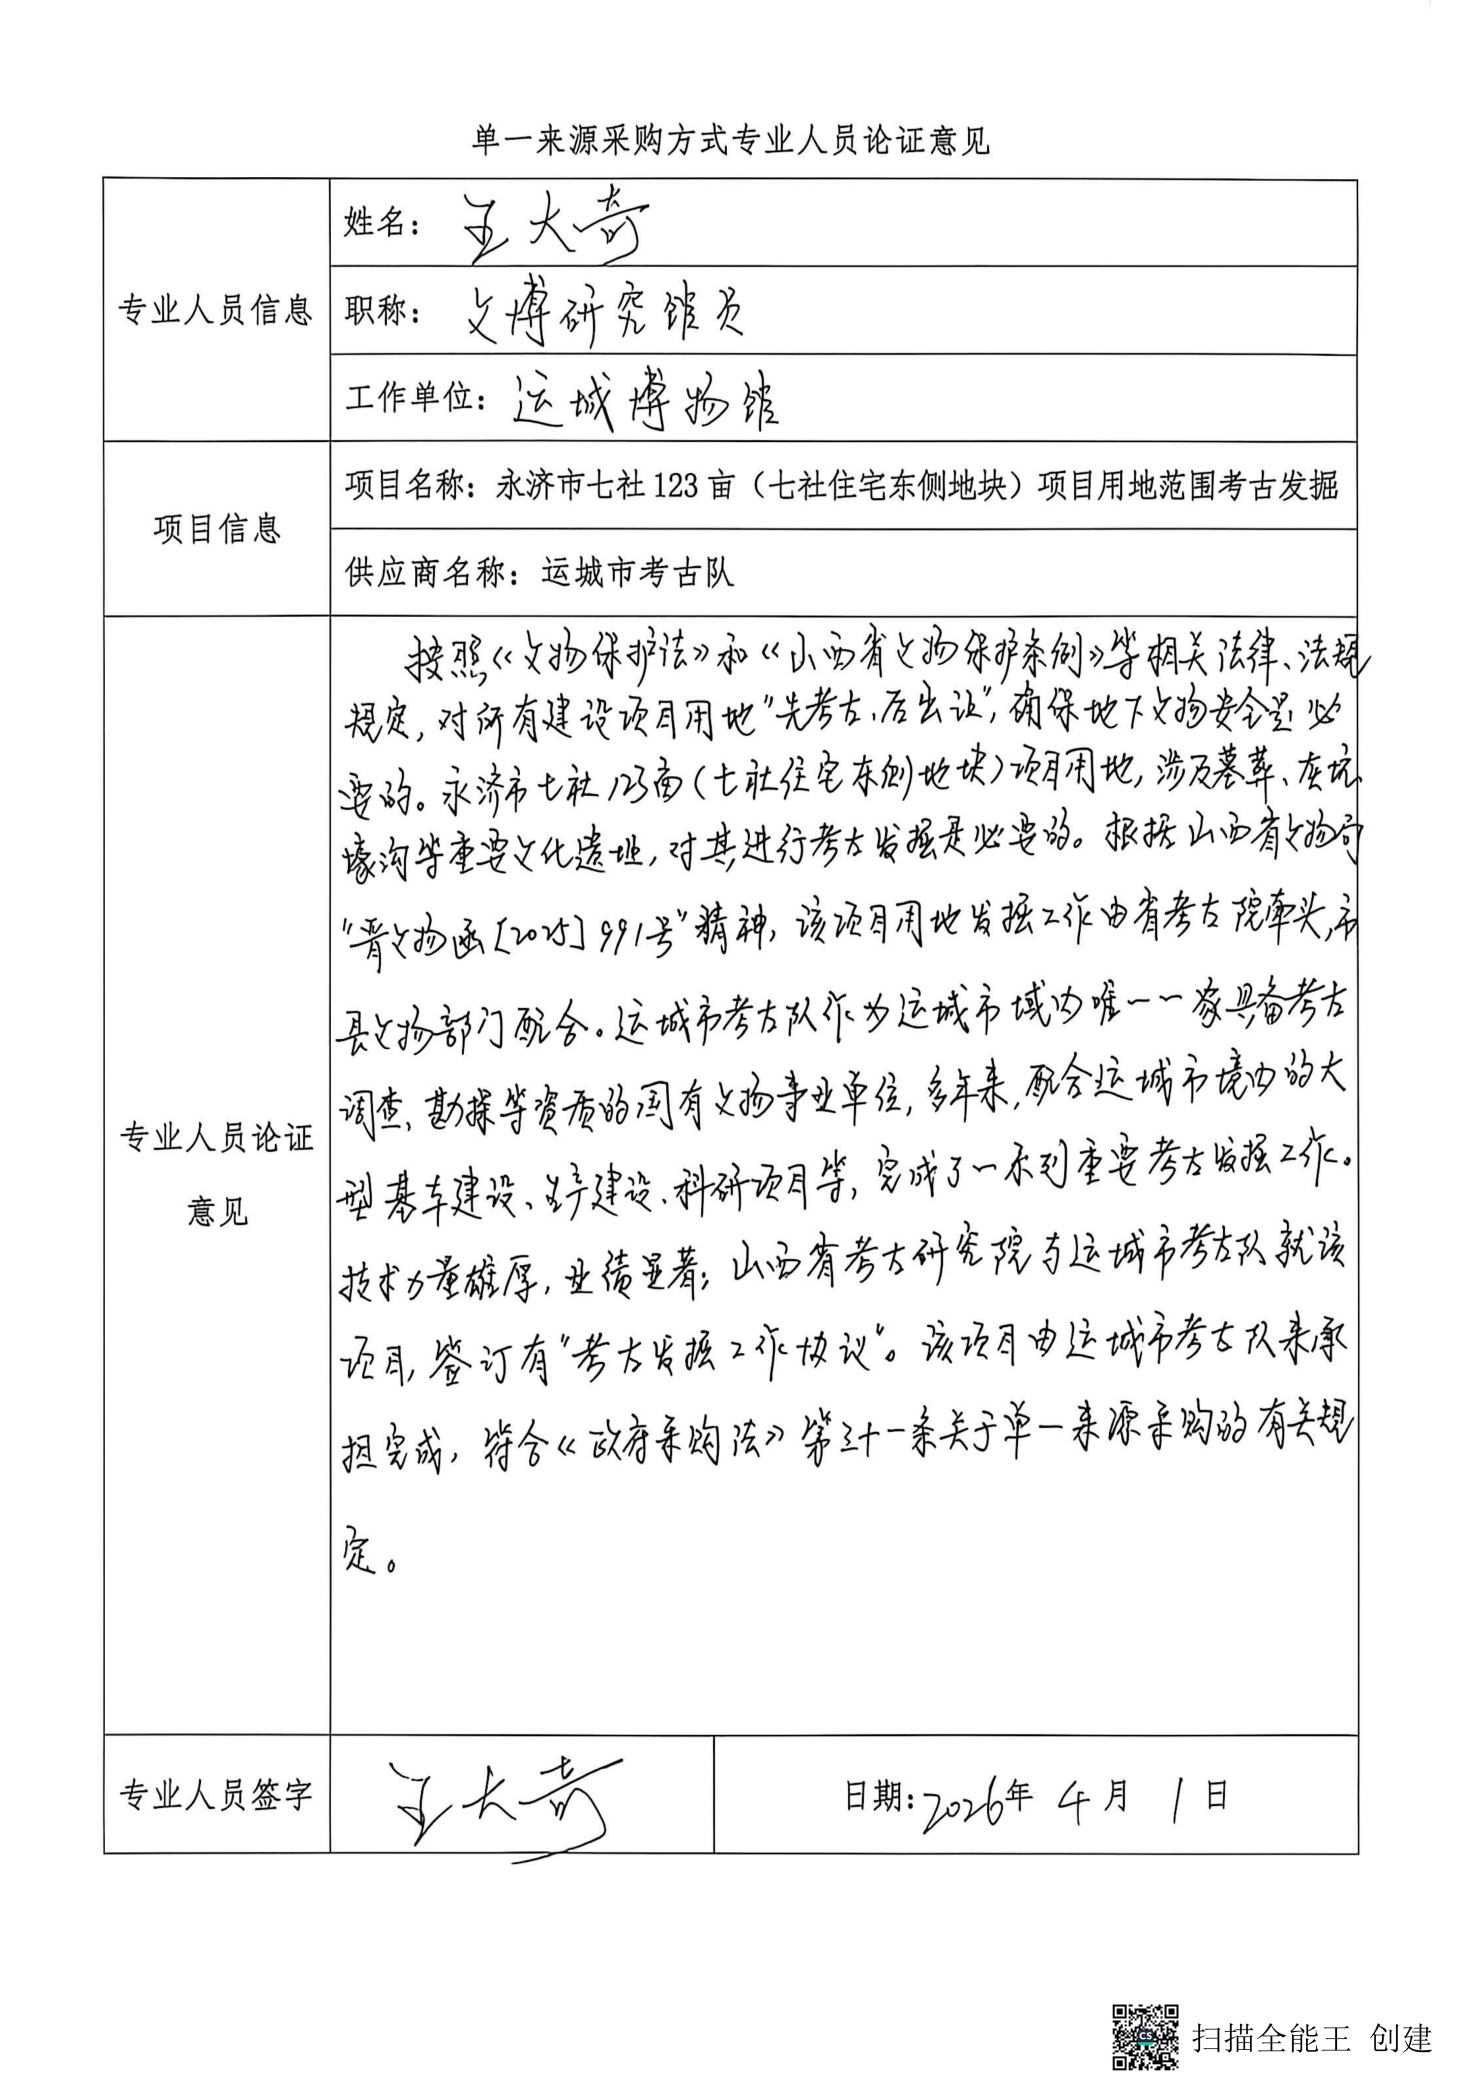 单一来源采购方式专业人员论证意见
专业人员信息
姓名：王大奇
职称：文博研究馆员
工作单位：运城博物馆
项目信息
项目名称：永济市七社123亩（七社住宅东侧地块）项目用地范围考古发掘
供应商名称：运城市考古队
专业人员论证
意见
按照《文物保护法》和《山西省文物保护条例》等相关法律、法规
规定，对所有建设项目用地“先考古、后出让”，确保地下文物安全是必
要的。永济市七社123亩（七社住宅东侧地块）项目用地，涉及墓葬、灰坑、
壕沟等重要文化遗址，对其进行考古发掘是必要的。根据山西省文物局
“晋文物函［2025］991号”精神，该项目用地发掘工作由省考古院牵头，市
县文物部门配合。运城市考古队作为运城市域内唯一一家具备考古
调查、勘探等资质的国有文物事业单位，多年来，配合运城市境内的大
型基本建设、生产建设、科研项目等，完成了一系列重要考古发掘工作。
技术力量雄厚，业绩显著；山西省考古研究院与运城市考古队就该
项目，签订有“考古发掘工作协议”。该项目由运城市考古队来承
担完成，符合《政府采购法》第三十一条关于单一来源采购的有关规
定。
专业人员签字
王大奇
日期：2026年 4月 1日
扫描全能王 创建